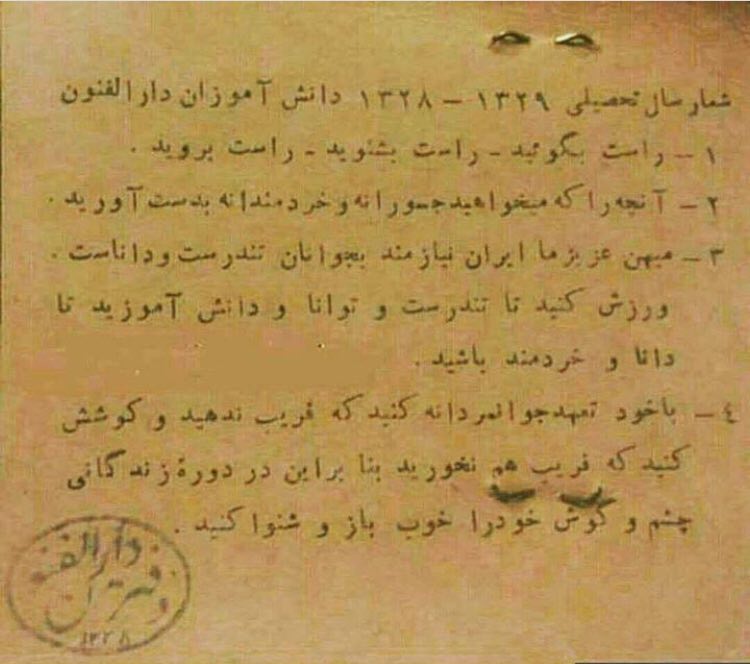 شعار سال تحصیلی ۱۳۲۹ – ۱۳۲۸ دانش آموزان دارالفنون
۱ – راست بگوئید – راست بشنوید – راست بروید .
۲ – آنچه را که میخواهید جسورانه و خردمندانه بدست آورید .
۳ – میهن عزیز ما ایران نیازمند بجوانان تندرست و داناست .
ورزش کنید تا تندرست و توانا و دانش آموزید تا
دانا و خردمند باشید .
٤ – باخود تعهد جوانمردانه کنید که فریب ندهید و کوشش
کنید که فریب هم نخورید بنا براین در دورهٔ زندگانی
چشم و گوش خودرا خوب باز و شنوا کنید .
دفتر دارالفنون
۱۳۲۸